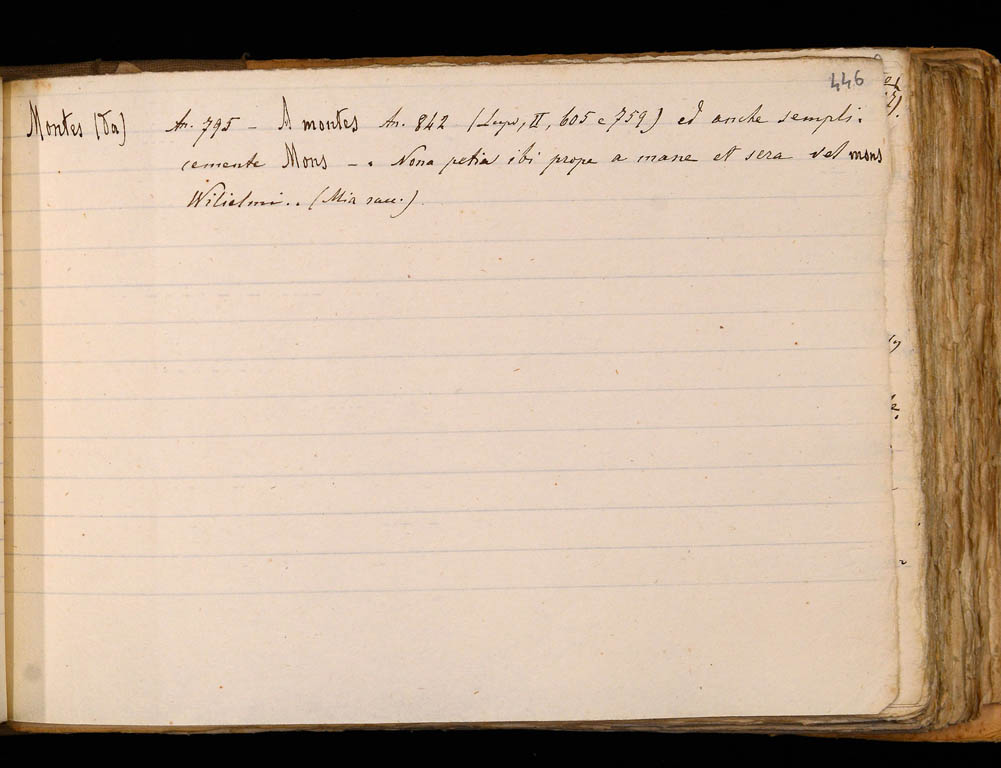 446
Montes (da) An. 795 – A montes An. 842 (Lupo, II, 605 e 759) ed anche sempli-
cemente Mons – . Nona petia ibi prope a mane et sera vel mons
Wilielmi .. (Mia racc.)